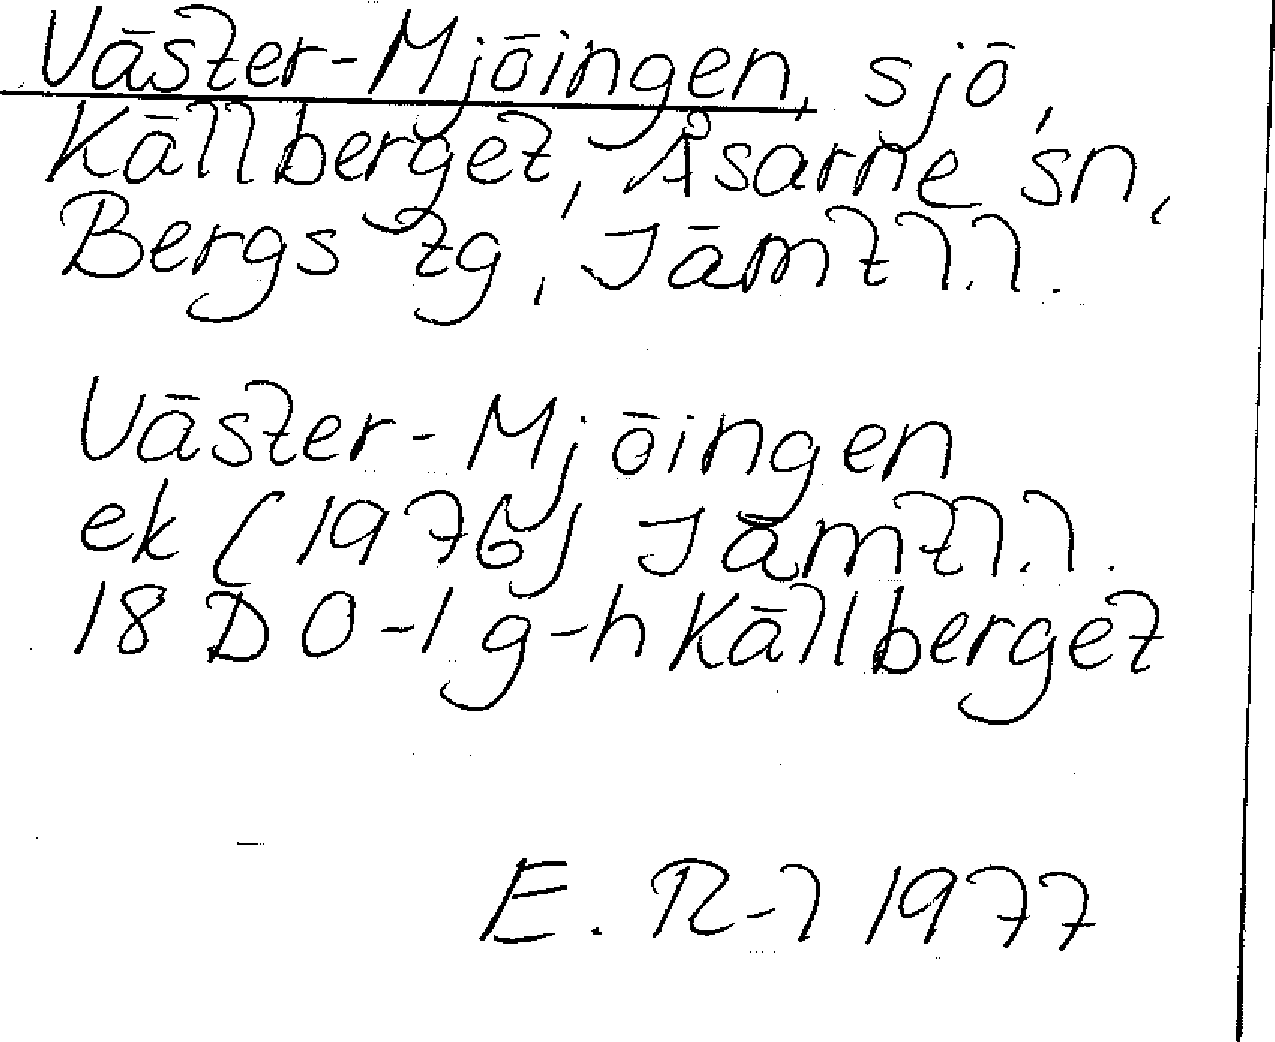 Väster-Mjöingen, sjö,
Källberget, Åsarne sn,
Bergs tg, Jämtl.l.
Väster-Mjöingen
ek (1976) Jämtl.l.
18 D 0-1 g-h Källberget
E. R-l 1977